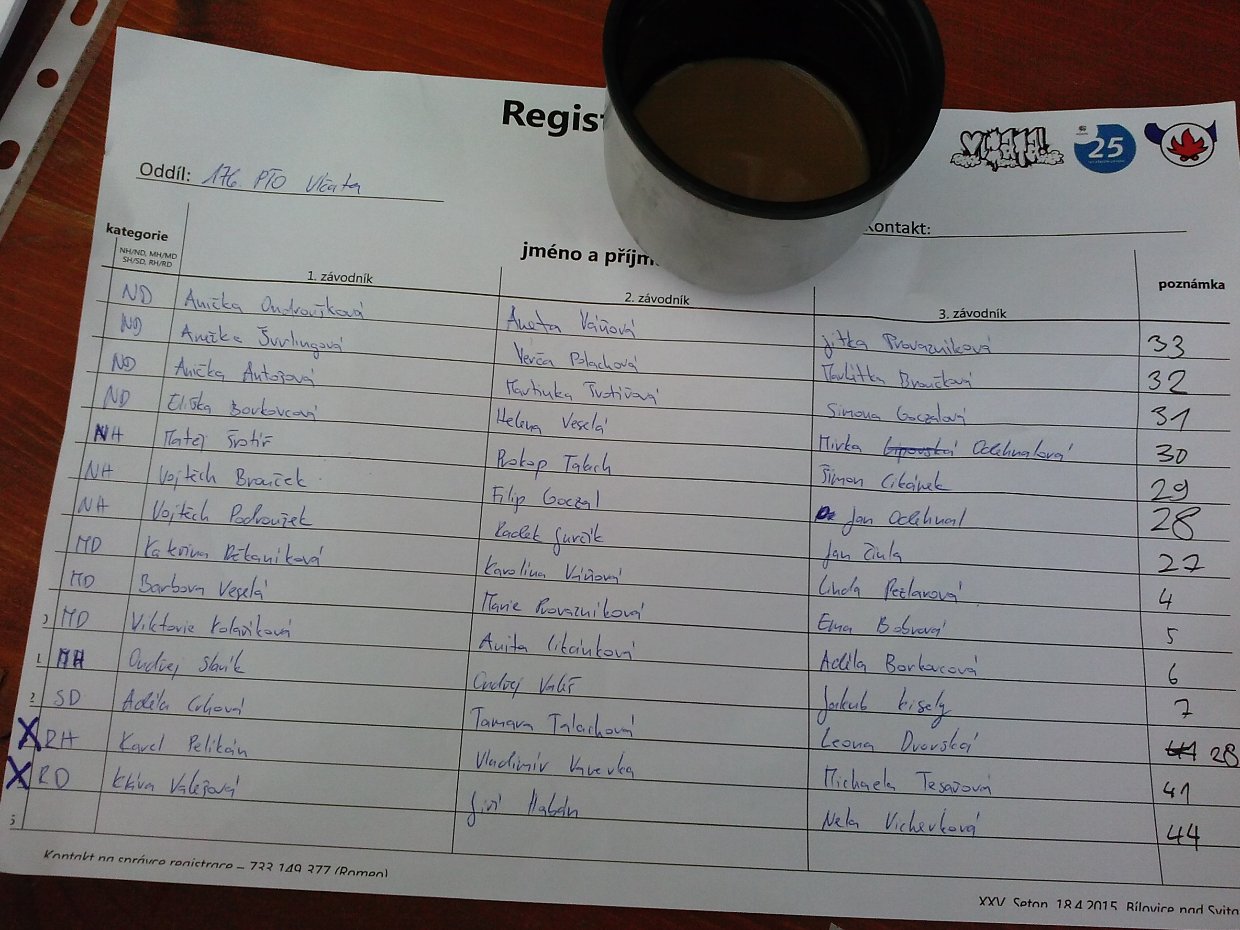 Regist
25
Oddíl: 176. PTO Vlčata
Kontakt:
kategorie
NH/ND, MH/MD
SH/SD, RH/RD
jméno a příjm
poznámka
1. závodník 2. závodník 3. závodník
ND Anička Ondroušková Aneta Váňová Jitka Provazníková 33
ND Anežka Švrlingová Verča Polachová Markétka Broučková 32
ND Anička Antošová Martinka Šrotířová Simona Goczalová 31
ND Eliška Borkovcová Helena Veselá Mirka Lipovská Odehnalová 30
NH Matěj Šrotíř Prokop Talach Šimon Cikánek 29
NH Vojtěch Brouček Filip Goczal Jan Odehnal 28
NH Vojtěch Podroužek Radek Jurčík Jan Žiula 27
MD Kateřina Děkaníková Karolína Váňová Linda Pezlarová 4
MD Barbora Veselá Marie Provazníková Ema Bobrová 5
MD Viktorie Kolaříková Anita Cikánková Adéla Borkovcová 6
MH Ondřej Slavík Ondřej Valíř Jakub Kiselý 7
SD Adéla Crhová Tamara Talachová Leona Dvorská 41 28
X RH Karel Pelikán Vladimír Vaverka Michaela Tesařová 41
X RD Klára Valešová Jiří Habán Nela Vicherková 44
Kontakt na správce registrace – 733 149 377 (Romen)
XXV. Seton, 18.4.2015, Bílovice nad Svita